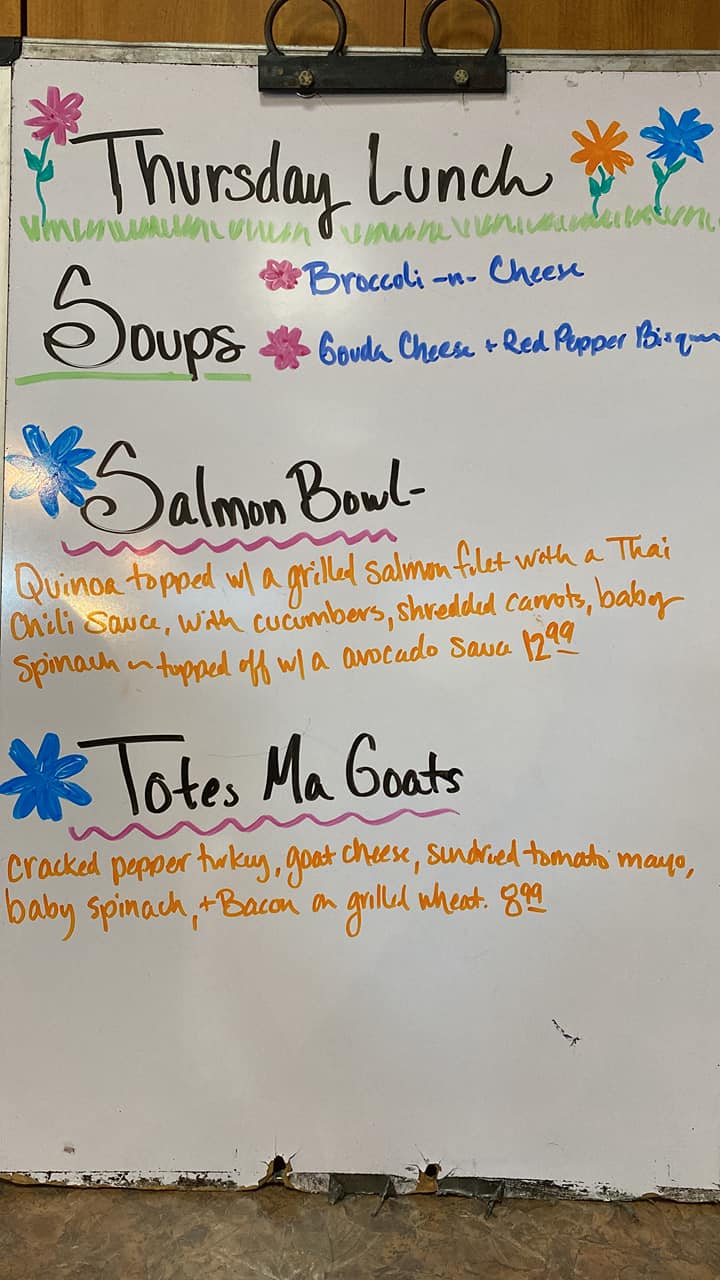 Thursday Lunch
Soups
Broccoli -n- Cheese
Gouda Cheese + Red Pepper Bisque
Salmon Bowl-
Quinoa topped w/ a grilled salmon filet with a Thai
Chili Sauce, with cucumbers, shredded carrots, baby
spinach n topped off w/ a avocado sauce 12.99
Totes Ma Goats
cracked pepper turkey, goat cheese, sundried tomato mayo,
baby spinach, + Bacon on grilled wheat. 8.99